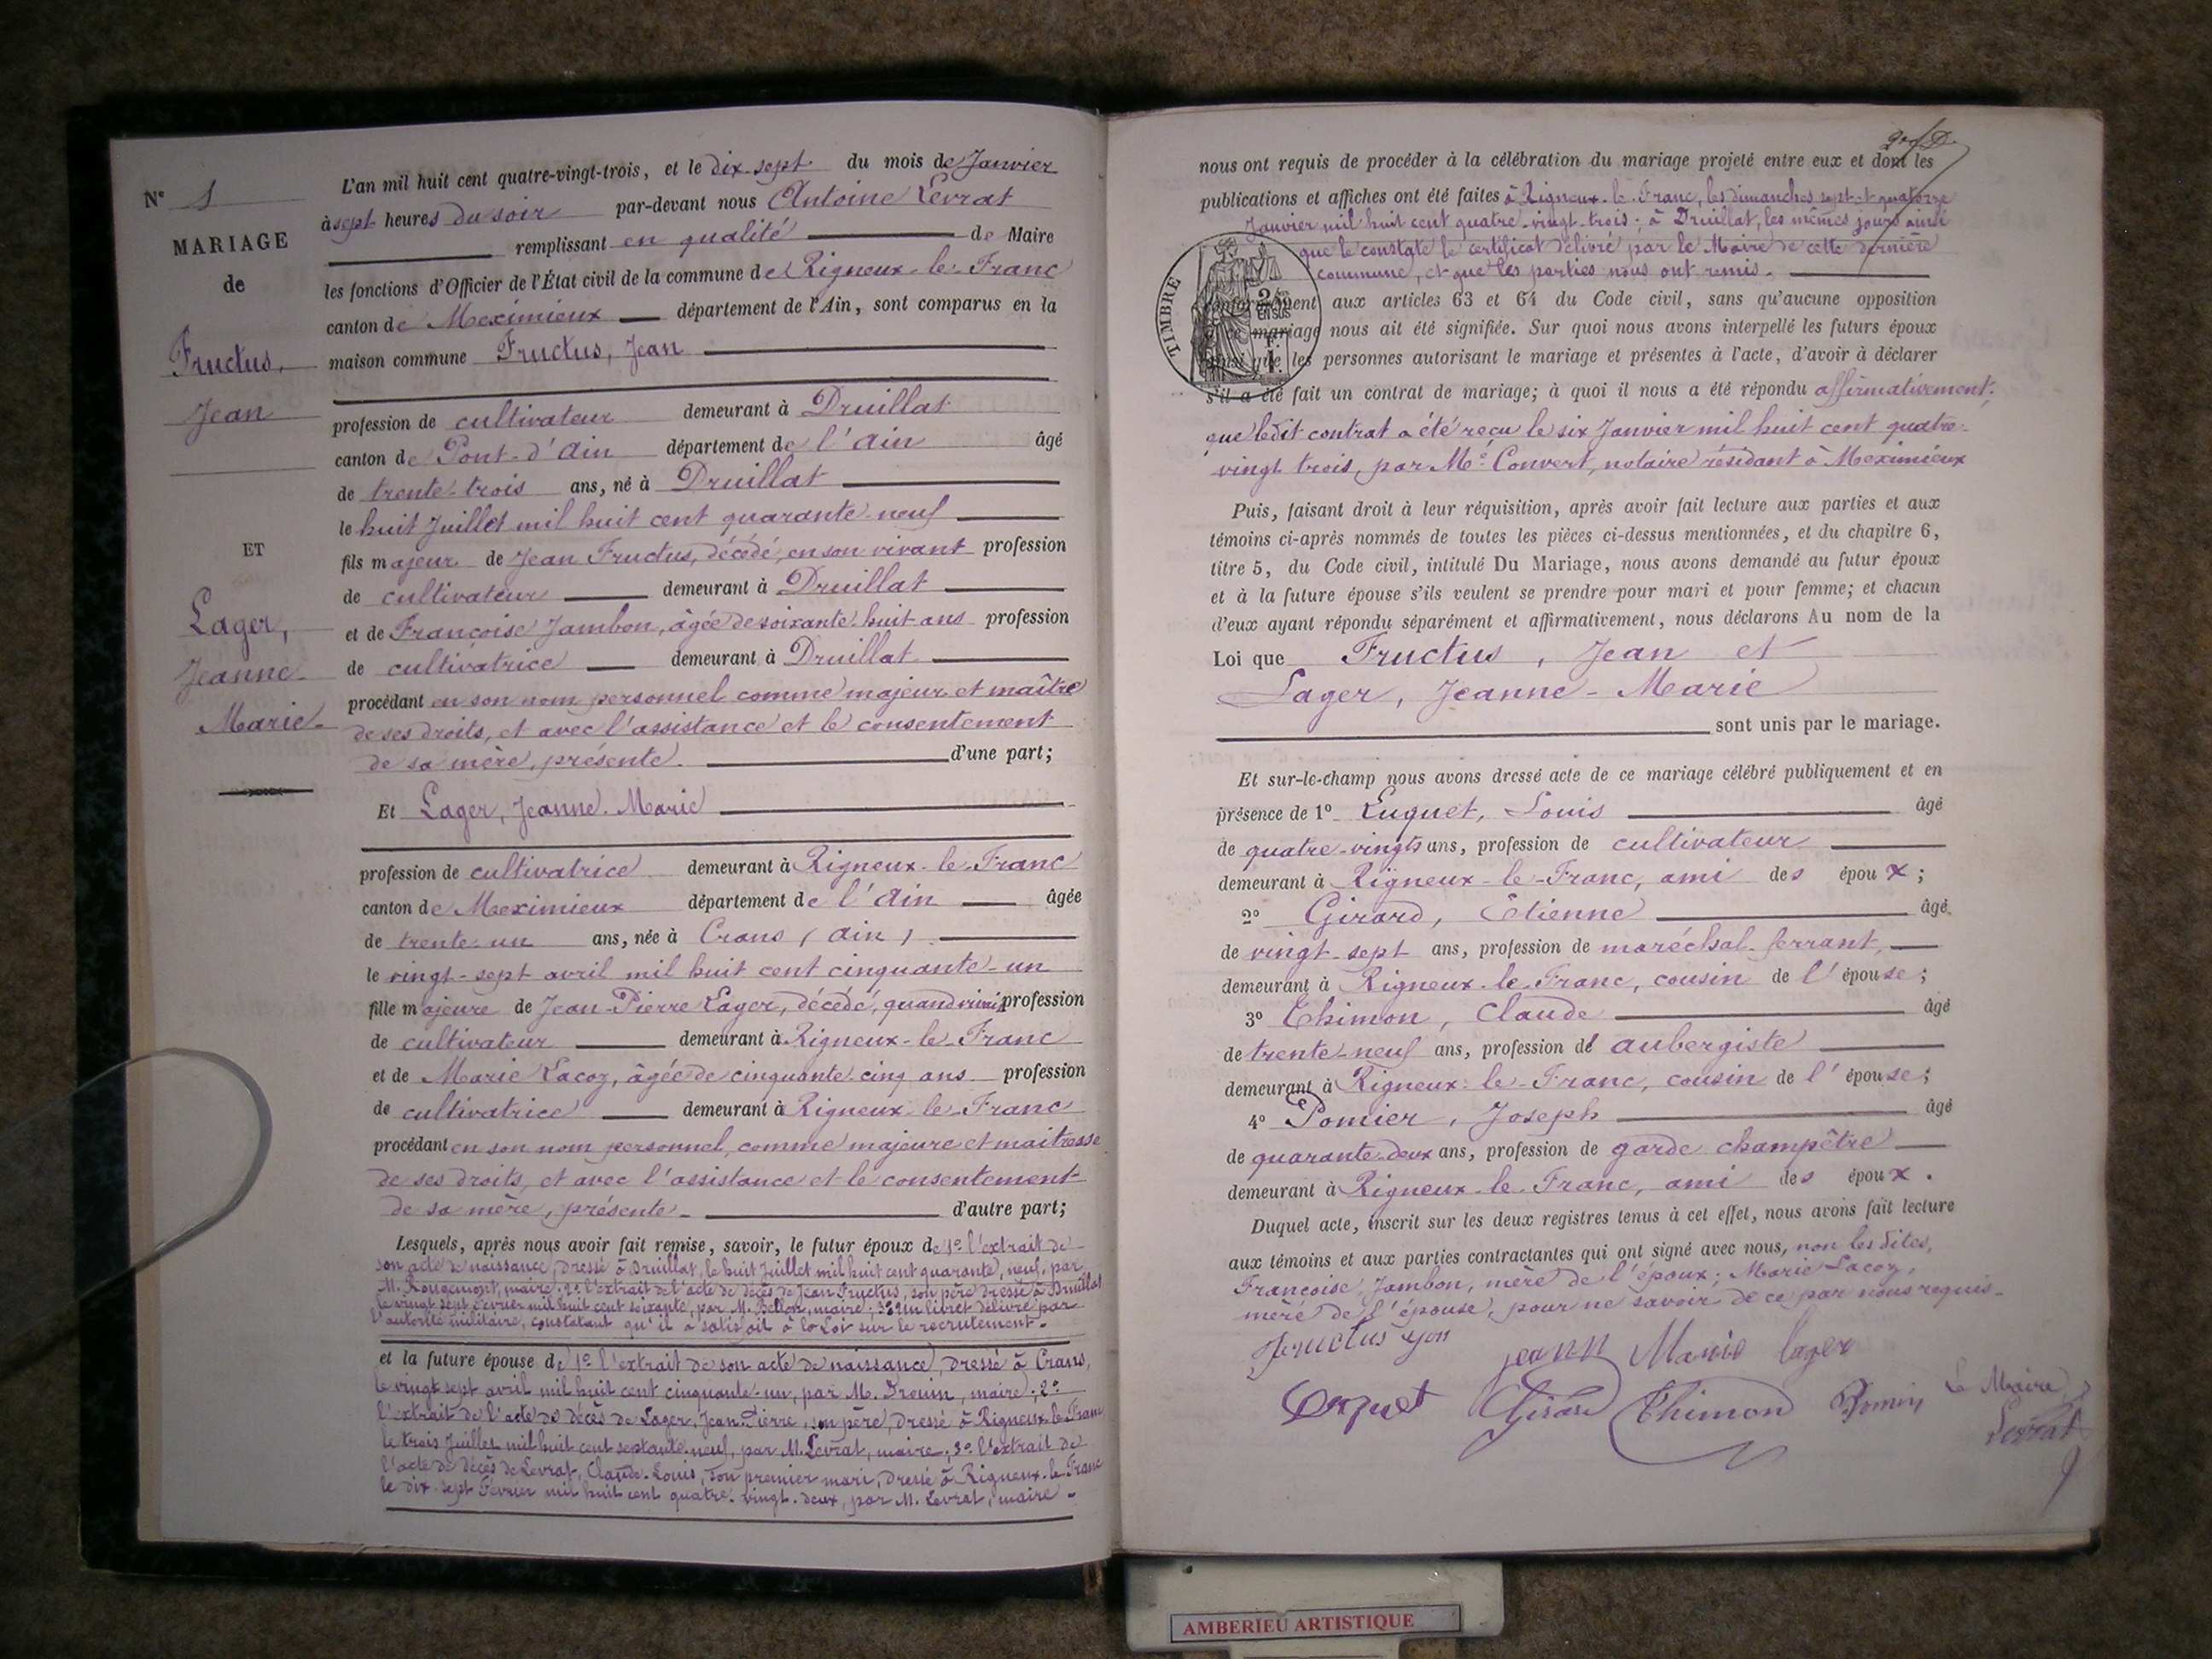 N° 1
MARIAGE
de
Fructus,
Jean
ET
Lager,
Jeanne-
Marie-
L'an mil huit cent quatre-vingt-trois, et le dix-sept du mois de Janvier
à sept heures du soir par-devant nous Antoine Levrat
remplissant en qualité de Maire
les fonctions d'Officier de l'État civil de la commune de Rigneux-le-Franc
canton de Meximieux département de l'Ain, sont comparus en la
maison commune Fructus, Jean
profession de cultivateur demeurant à Druillat
canton de Pont-d'Ain département de l'Ain âgé
de trente-trois ans, né à Druillat
le huit Juillet mil huit cent quarante-neuf
fils majeur de Jean Fructus, décédé, en son vivant profession
de cultivateur demeurant à Druillat
et de Françoise Jambon, âgée de soixante-huit ans profession
de cultivatrice demeurant à Druillat
procédant en son nom personnel comme majeur et maître
de ses droits, et avec l'assistance et le consentement
de sa mère, présente. d'une part;
Et Lager, Jeanne-Marie
profession de cultivatrice demeurant à Rigneux-le-Franc
canton de Meximieux département de l'Ain âgée
de trente-un ans, née à Crans (Ain)
le vingt-sept avril mil huit cent cinquante-un
fille majeure de Jean-Pierre Lager, décédé, quand vivait profession
de cultivateur demeurant à Rigneux-le-Franc
et de Marie Lacoz, âgée de cinquante-cinq ans profession
de cultivatrice demeurant à Rigneux-le-Franc
procédant en son nom personnel, comme majeure et maitresse
de ses droits, et avec l'assistance et le consentement
de sa mère, présente- d'autre part;
Lesquels, après nous avoir fait remise, savoir, le futur époux de 1° l'extrait de
son acte de naissance, dressé à Druillat, le huit Juillet mil huit cent quarante-neuf, par
M. Rougemont, maire; 2° l'extrait de l'acte de décès de Jean Fructus, son père dressé à Druillat
le vingt-sept février mil huit cent soixante, par M. maire; 3° un livret délivré par
l'autorité militaire, constatant qu'il a satisfait à la Loi sur le recrutement.
et la future épouse de 1° l'extrait de son acte de naissance, dressé à Crans,
le vingt sept avril mil huit cent cinquante-un, par M. maire; 2°
l'extrait de l'acte de décès de Lager, Jean-Pierre, son père, dressé à Rigneux-le-Franc
le trois Juillet mil huit cent septante-neuf, par M. Levrat, maire; 3° l'extrait de
l'acte de décès de Levrat, Claude-Louis, son premier mari, dressé à Rigneux-le-Franc
le dix-sept Février mil huit cent quatre-vingt-deux, par M. Levrat, maire-
nous ont requis de procéder à la célébration du mariage projeté entre eux et dont les
publications et affiches ont été faites à Rigneux-le-Franc, les dimanches sept et quatorze
Janvier mil huit cent quatre-vingt-trois; à Druillat, les mêmes jours ainsi
que le constate le certificat délivré par le Maire de cette dernière
commune, et que les parties nous ont remis-
TIMBRE
conformément aux articles 63 et 64 du Code civil, sans qu'aucune opposition
mariage nous ait été signifiée. Sur quoi nous avons interpellé les futurs époux
ainsi que les personnes autorisant le mariage et présentes à l'acte, d'avoir à déclarer
s'il a été fait un contrat de mariage; à quoi il nous a été répondu affirmativement;
que ledit contrat a été reçu le six Janvier mil huit cent quatre-
vingt trois, par Me Convert, notaire résidant à Meximieux
Puis, faisant droit à leur réquisition, après avoir fait lecture aux parties et aux
témoins ci-après nommés de toutes les pièces ci-dessus mentionnées, et du chapitre 6,
titre 5, du Code civil, intitulé Du Mariage, nous avons demandé au futur époux
et à la future épouse s'ils veulent se prendre pour mari et pour femme; et chacun
d'eux ayant répondu séparément et affirmativement, nous déclarons Au nom de la
Loi que Fructus, Jean et
Lager, Jeanne-Marie
sont unis par le mariage.
Et sur-le-champ nous avons dressé acte de ce mariage célébré publiquement et en
présence de 1° Luquet, Louis âgé
de quatre-vingts ans, profession de cultivateur
demeurant à Rigneux-le-Franc, ami des époux;
2° Girard, Etienne âgé
de vingt-sept ans, profession de maréchal-ferrant,
demeurant à Rigneux-le-Franc, cousin de l'épouse;
3° Thimon, Claude âgé
de trente-neuf ans, profession d'aubergiste
demeurant à Rigneux-le-Franc, cousin de l'épouse;
4° Pomier, Joseph âgé
de quarante-deux ans, profession de garde champêtre
demeurant à Rigneux-le-Franc, ami des époux.
Duquel acte, inscrit sur les deux registres tenus à cet effet, nous avons fait lecture
aux témoins et aux parties contractantes qui ont signé avec nous, non les dites,
Françoise Jambon, mère de l'époux; Marie Lacoz,
mère de l'épouse, pour ne savoir de ce par nous requis-
Fructus jean Marie lager
Girard Thimon Le Maire
Levrat
AMBERÏEU ARTISTIQUE